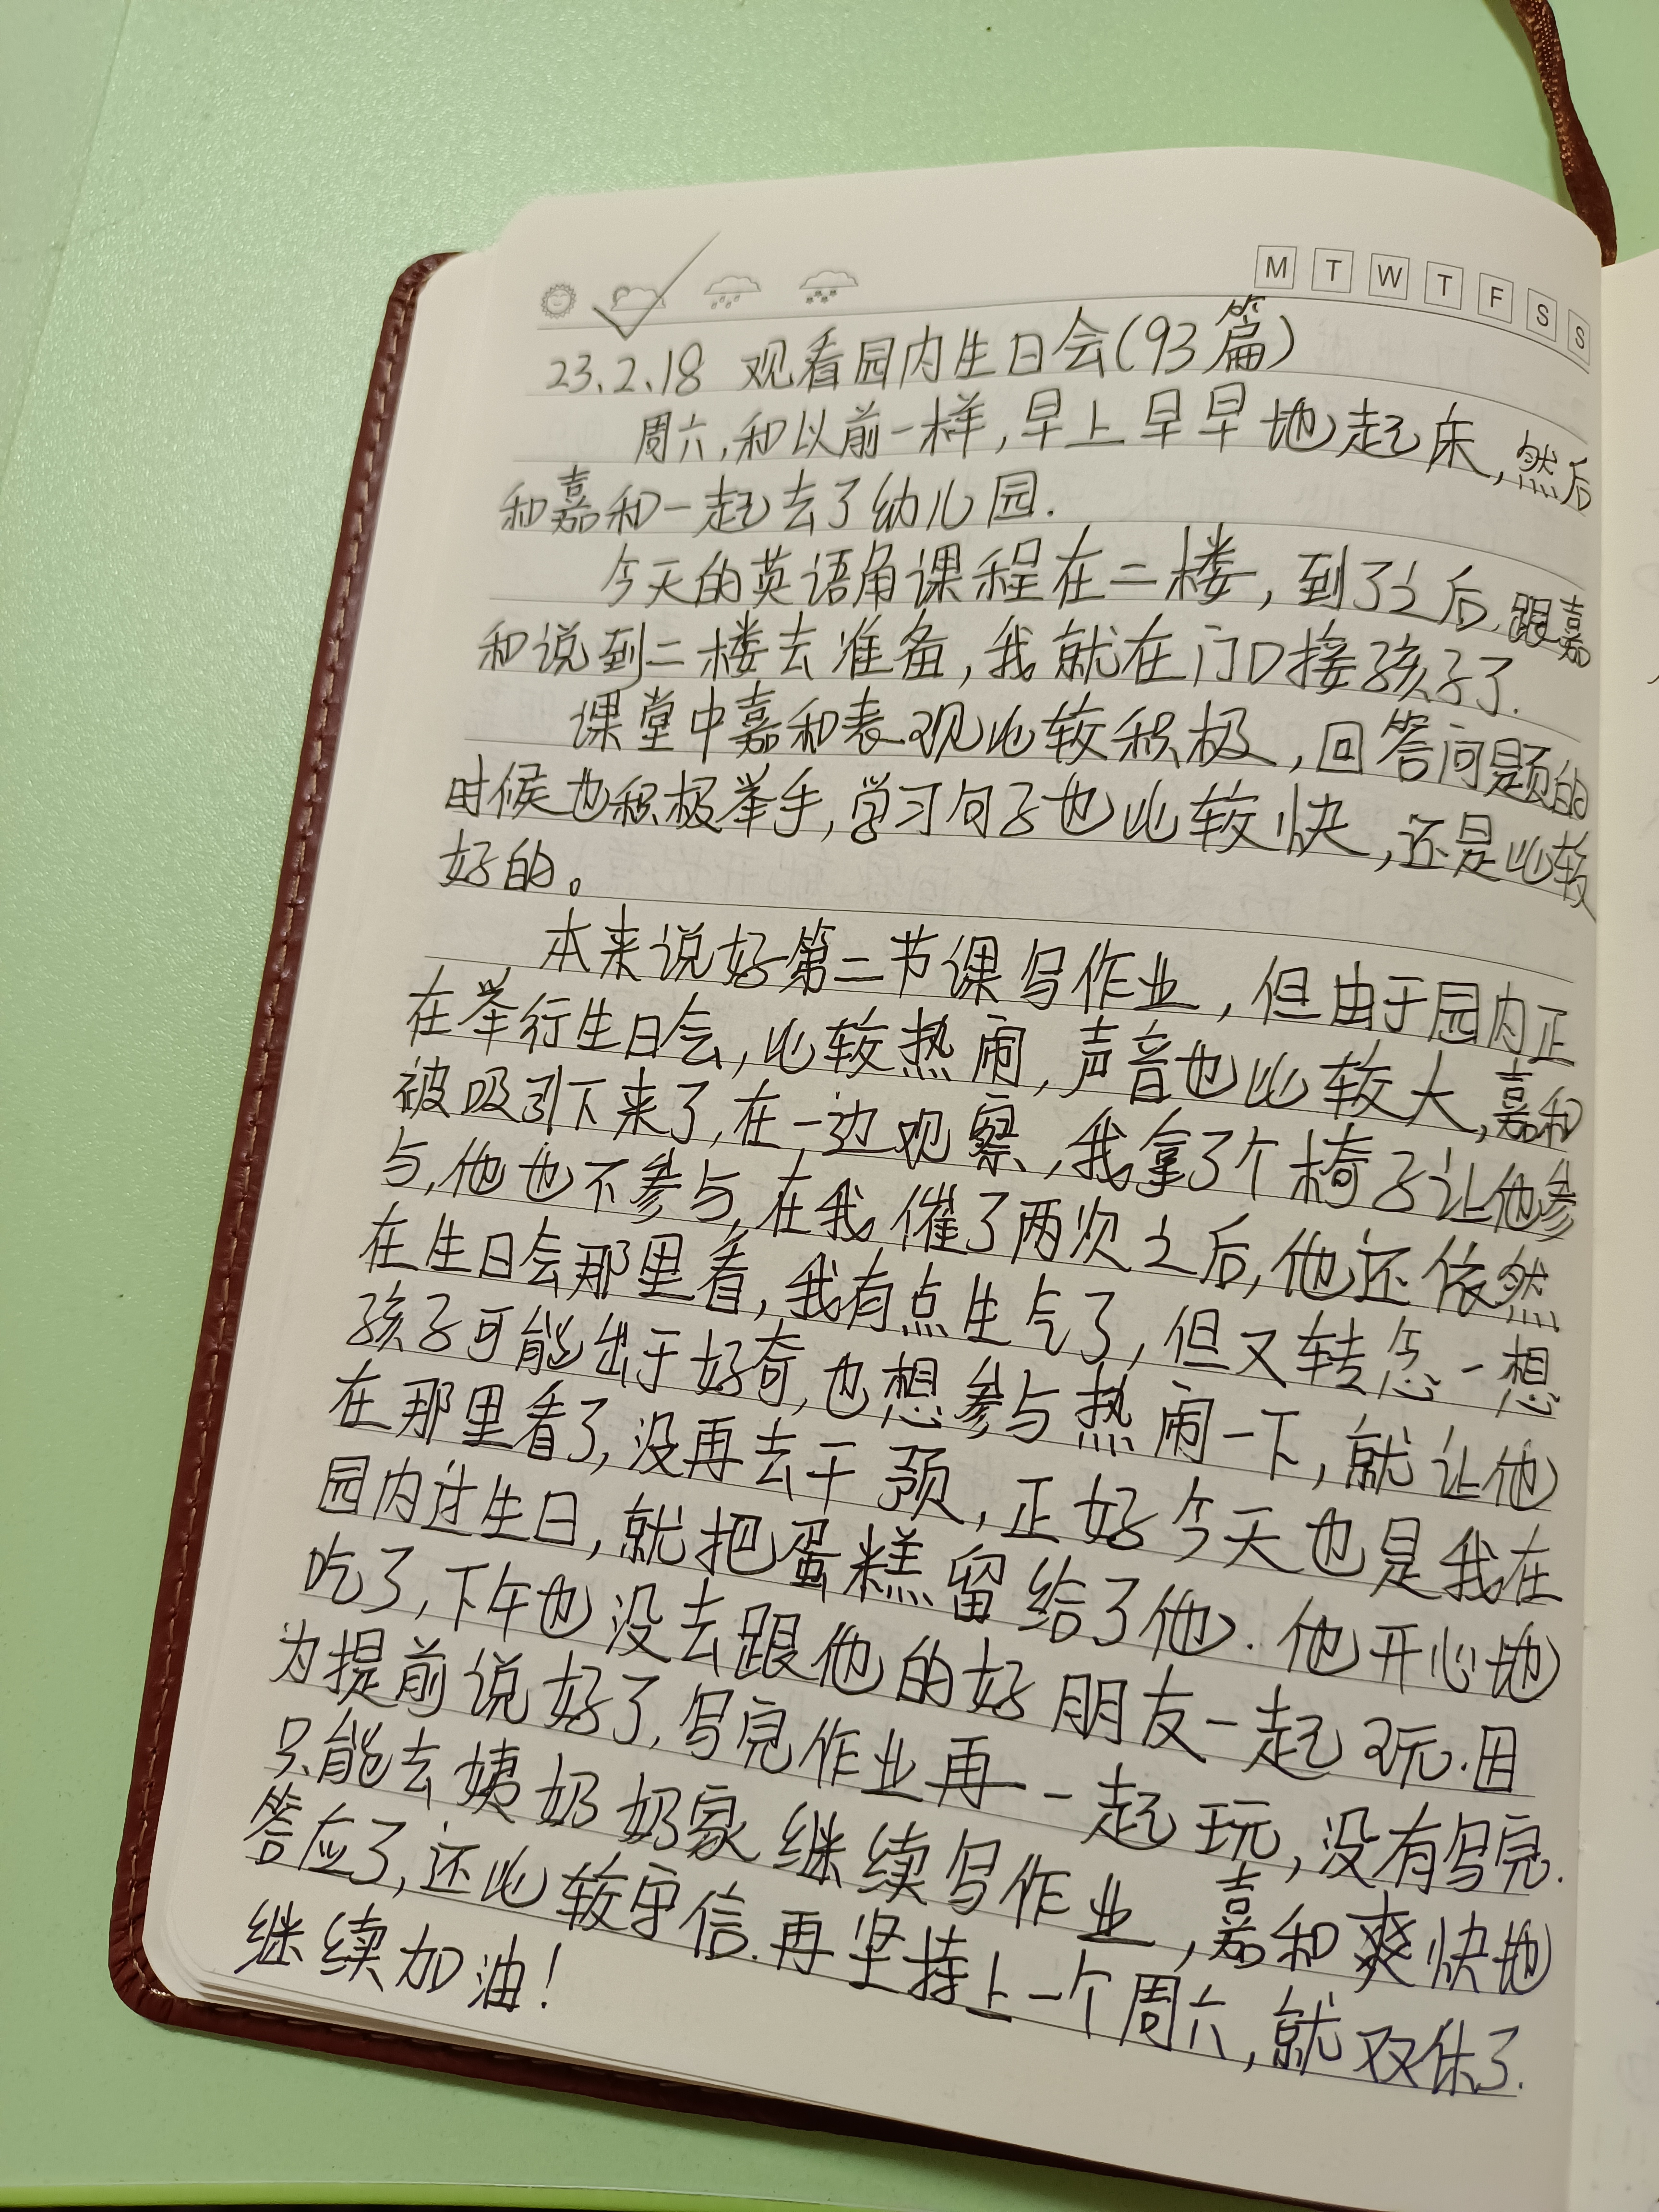 M T W T F S S
23、2、18 观看园内生日会(93篇)
周六,和以前一样,早上早早地起床,然后
和嘉和一起去了幼儿园.
今天的英语角课程在二楼,到了之后,跟嘉
和说到二楼去准备,我就在门口接孩子了.
课堂中嘉和表现比较积极,回答问题的
时候也积极举手,学习句子也比较快,还是比较
好的。
本来说好第二节课写作业,但由于园内正
在举行生日会,比较热闹,声音也比较大,嘉和
被吸引下来了,在一边观察,我拿了个椅子让他参
与,他也不参与,在我催了两次之后,他还依然
在生日会那里看,我有点生气了,但又转念一想
孩子可能出于好奇,也想参与热闹一下,就让他
在那里看了,没再去干预,正好今天也是我在
园内过生日,就把蛋糕留给了他.他开心地
吃了,下午也没去跟他的好朋友一起玩.因
为提前说好了,写完作业再一起玩,没有写完.
只能去姨奶奶家继续写作业,嘉和爽快地
答应了,还比较守信.再坚持上一个周六,就双休了.
继续加油!